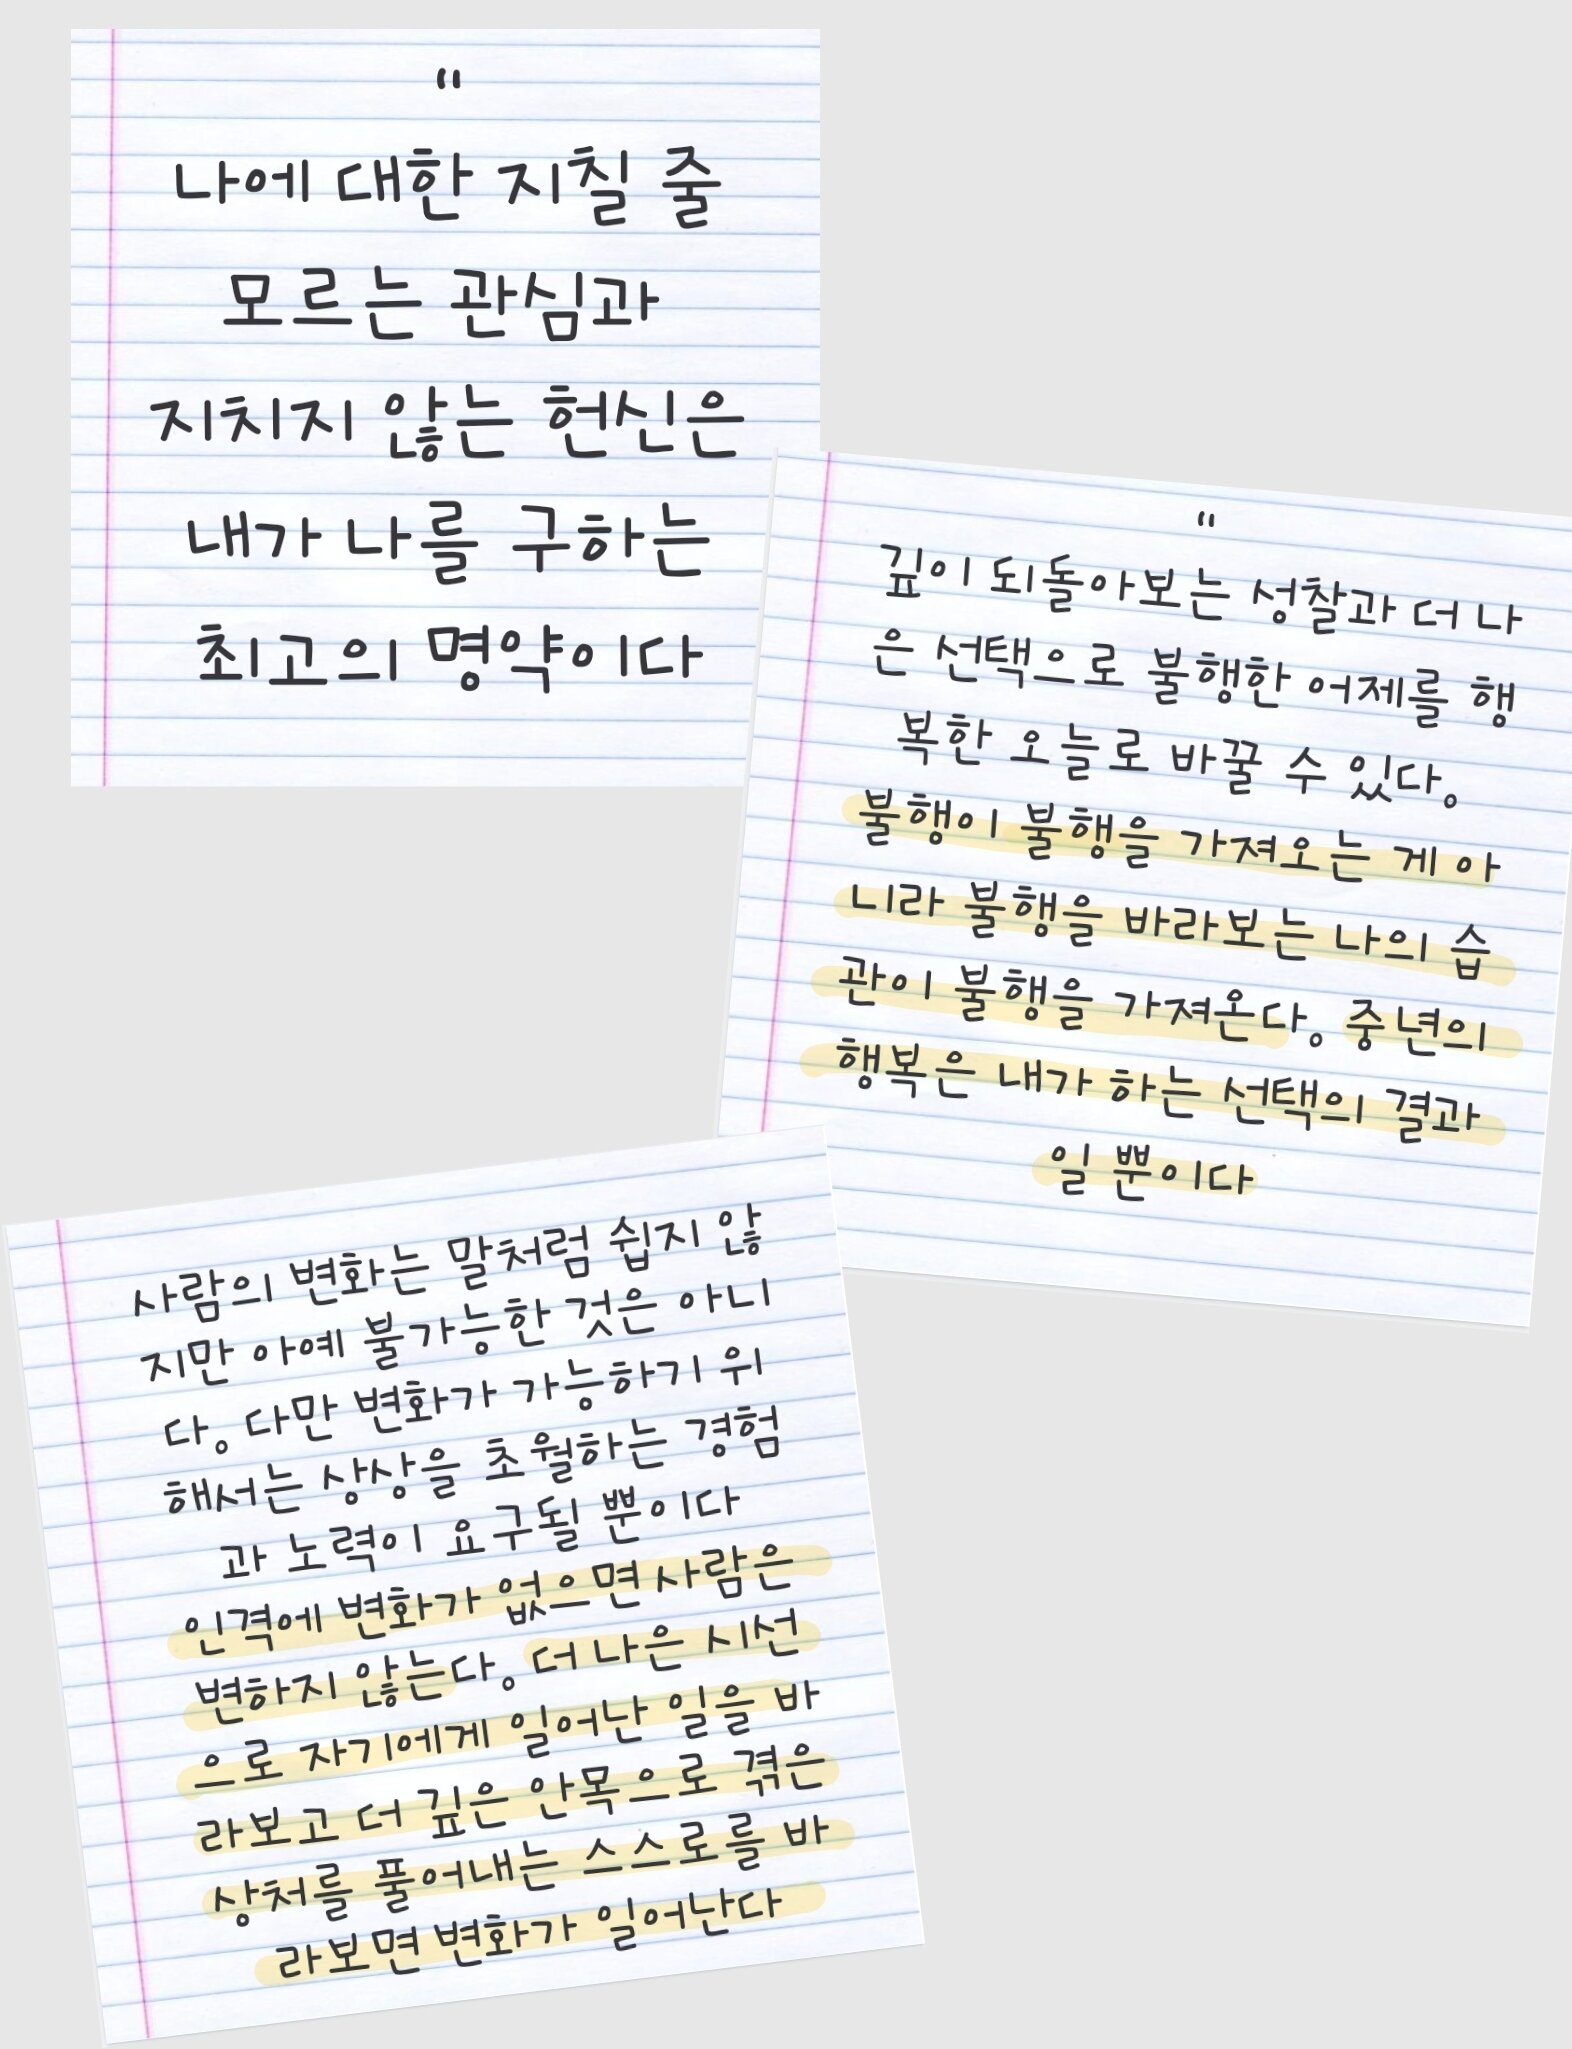 "
나에 대한 지칠 줄
모르는 관심과
지치지 않는 헌신은
내가 나를 구하는
최고의 명약이다
"
깊이 되돌아보는 성찰과 더 나
은 선택으로 불행한 어제를 행
복한 오늘로 바꿀 수 있다.
불행이 불행을 가져오는 게 아
니라 불행을 바라보는 나의 습
관이 불행을 가져온다. 중년의
행복은 내가 하는 선택의 결과
일 뿐이다
사람의 변화는 말처럼 쉽지 않
지만 아예 불가능한 것은 아니
다. 다만 변화가 가능하기 위
해서는 상상을 초월하는 경험
과 노력이 요구될 뿐이다
인격에 변화가 없으면 사람은
변하지 않는다. 더 나은 시선
으로 자기에게 일어난 일을 바
라보고 더 깊은 안목으로 겪은
상처를 풀어내는 스스로를 바
라보면 변화가 일어난다